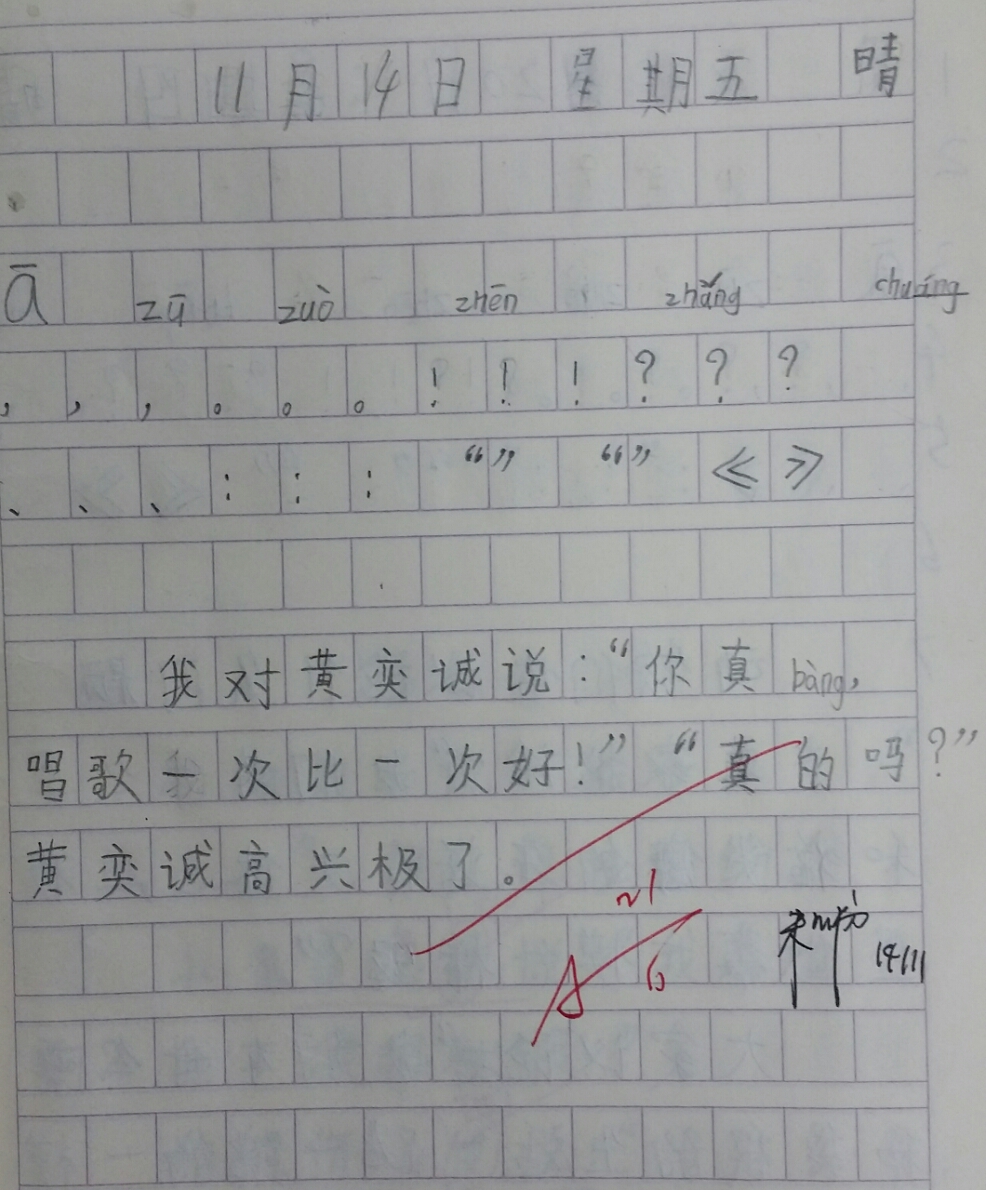 11月14日 星期五 晴
ā zū zuò zhēn zhǎng chuáng
，，，。。。！！！？？？
、、、：：：“” “” 《》
我对黄奕诚说：“你真bàng，
唱歌一次比一次好！”“真的吗？”
黄奕诚高兴极了。
14/11